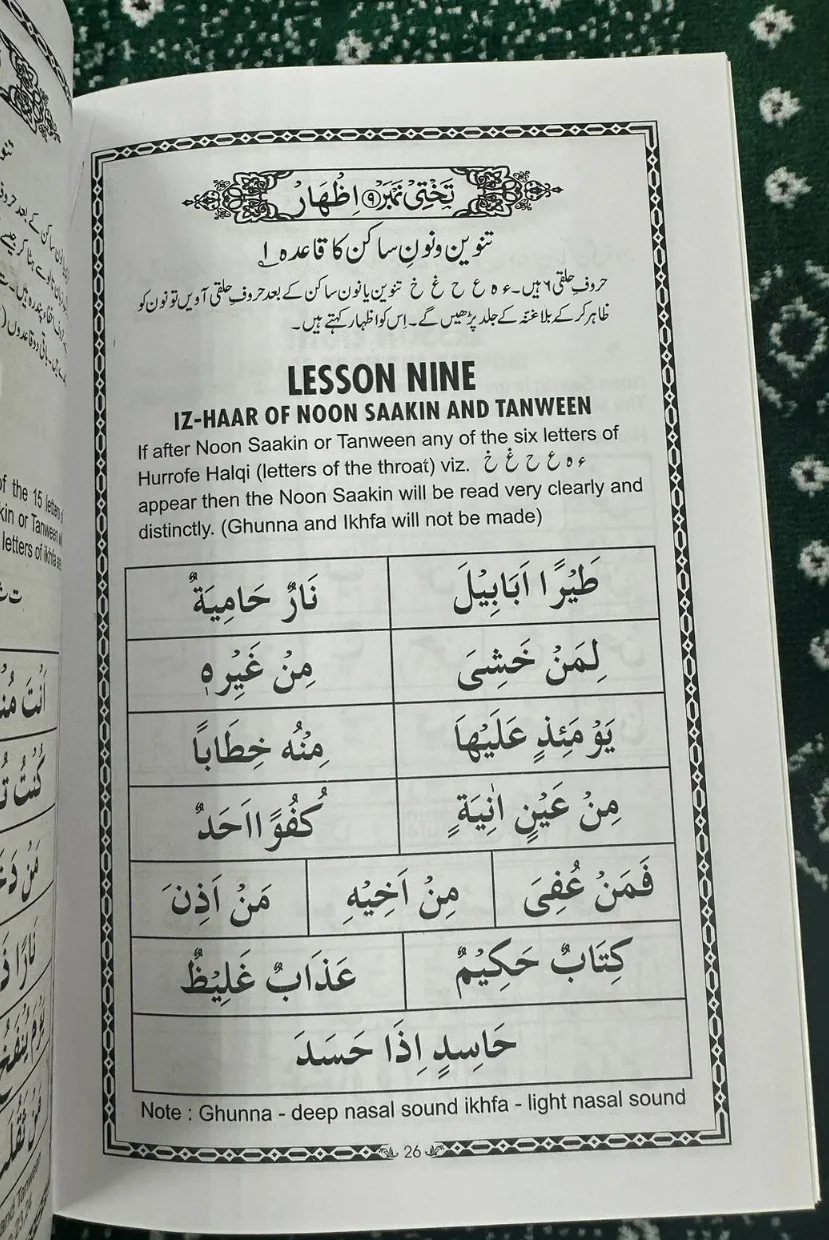 تختی نمبر ۹ اِظْهَارْ
تنوین و نونِ ساکن کا قاعدہ ۱
حروفِ حلقی ۶ ہیں۔ ء ہ ع ح غ خ تنوین یا نون ساکن کے بعد حروفِ حلقی آویں تو نون کو
ظاہر کرکے بلا غنّہ کے جلد پڑھیں گے۔ اِس کو اظہار کہتے ہیں۔
LESSON NINE
IZ-HAAR OF NOON SAAKIN AND TANWEEN
If after Noon Saakin or Tanween any of the six letters of
Hurrofe Halqi (letters of the throat) viz. ء ہ ع ح غ خ
appear then the Noon Saakin will be read very clearly and
distinctly. (Ghunna and Ikhfa will not be made)
طَيْرًا اَبَابِيْلَ نَارٌ حَامِيَةٌ
لِمَنْ خَشِىَ مِنْ غَيْرِهٖ
يَوْمَئِذٍ عَلَيْهَا مِنْهُ خِطَابًا
مِنْ عَيْنٍ اٰنِيَةٍ كُفُوًا اَحَدٌ
فَمَنْ عُفِىَ مِنْ اَخِيْهِ مَنْ اَذِنَ
كِتَابٌ حَكِيْمٌ عَذَابٌ غَلِيْظٌ
حَاسِدٍ اِذَا حَسَدَ
Note : Ghunna - deep nasal sound ikhfa - light nasal sound
26
of the 15 letters
letters of ikhfa are